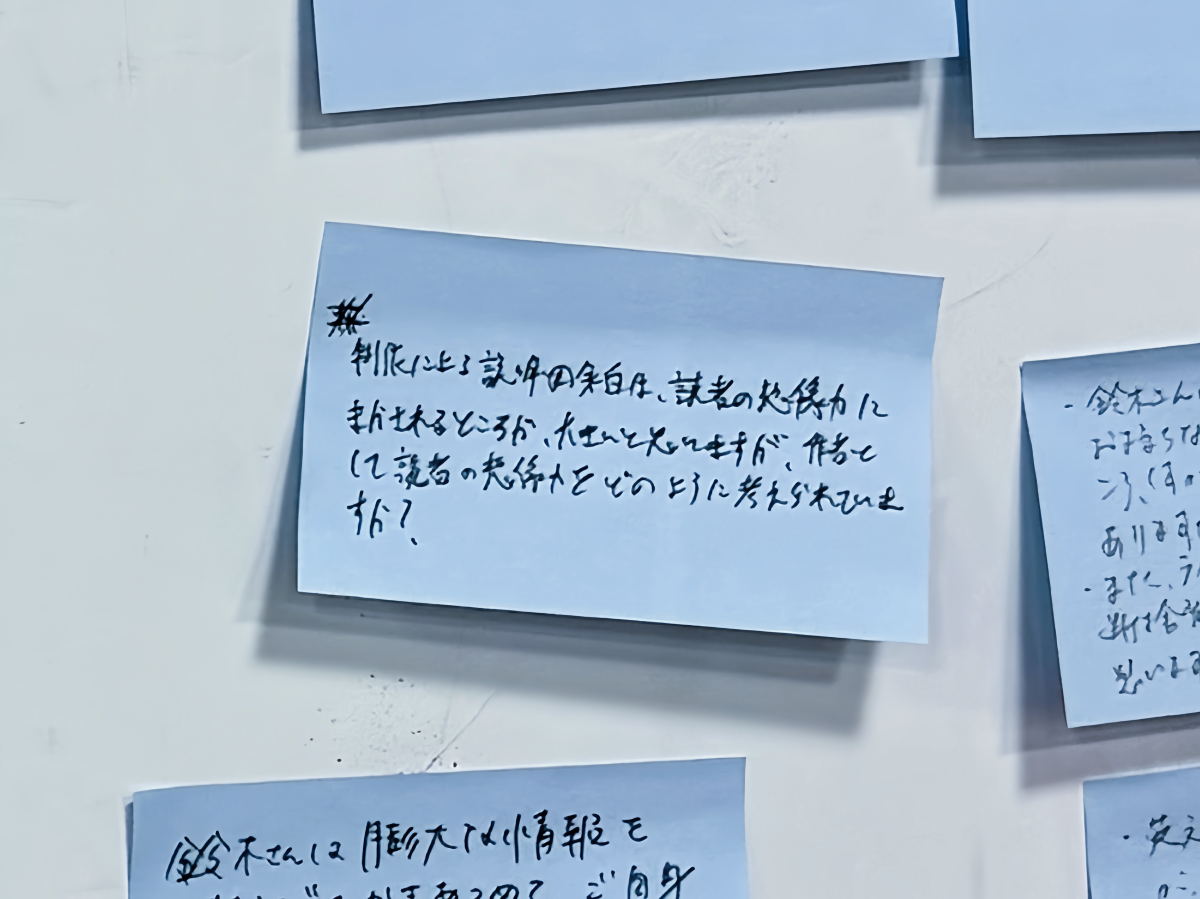 制限による説明の余白は、読者の想像力に
まかされるところが、大きいと思いますが、作者と
して読者の想像力をどのように考えられていま
すか？
- 鈴木さん
あります
・また、
思います
鈴木さんは膨大な情報を
ご自身
・英文